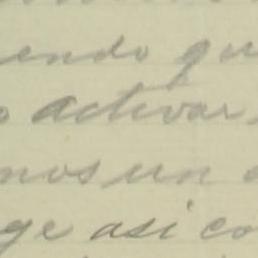 endo qu
o activar,
mos un
ge asi co